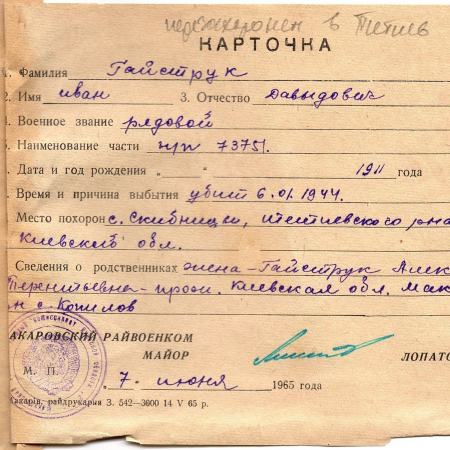 перезахоронен в Тетиев
КАРТОЧКА
1. Фамилия Гайструк
2. Имя Иван 3. Отчество Давыдович
4. Военное звание рядовой
5. Наименование части п/п 73751.
6. Дата и год рождения „ " 1911 года
Время и причина выбытия убит 6.01.1944.
Место похорон с. Скибинцы, Тетиевского р-на
Киевской обл.
Сведения о родственниках жена - Гайструк Алек
Терентьевна - прож. Киевская обл. Мак
н с. Копилов
МАКАРОВСКИЙ РАЙВОЕНКОМ
МАЙОР ЛОПАТО
М. П.
„ 7 " июня 1965 года
Макарів, райдрукарня З. 542—3600 14 V 65 р.